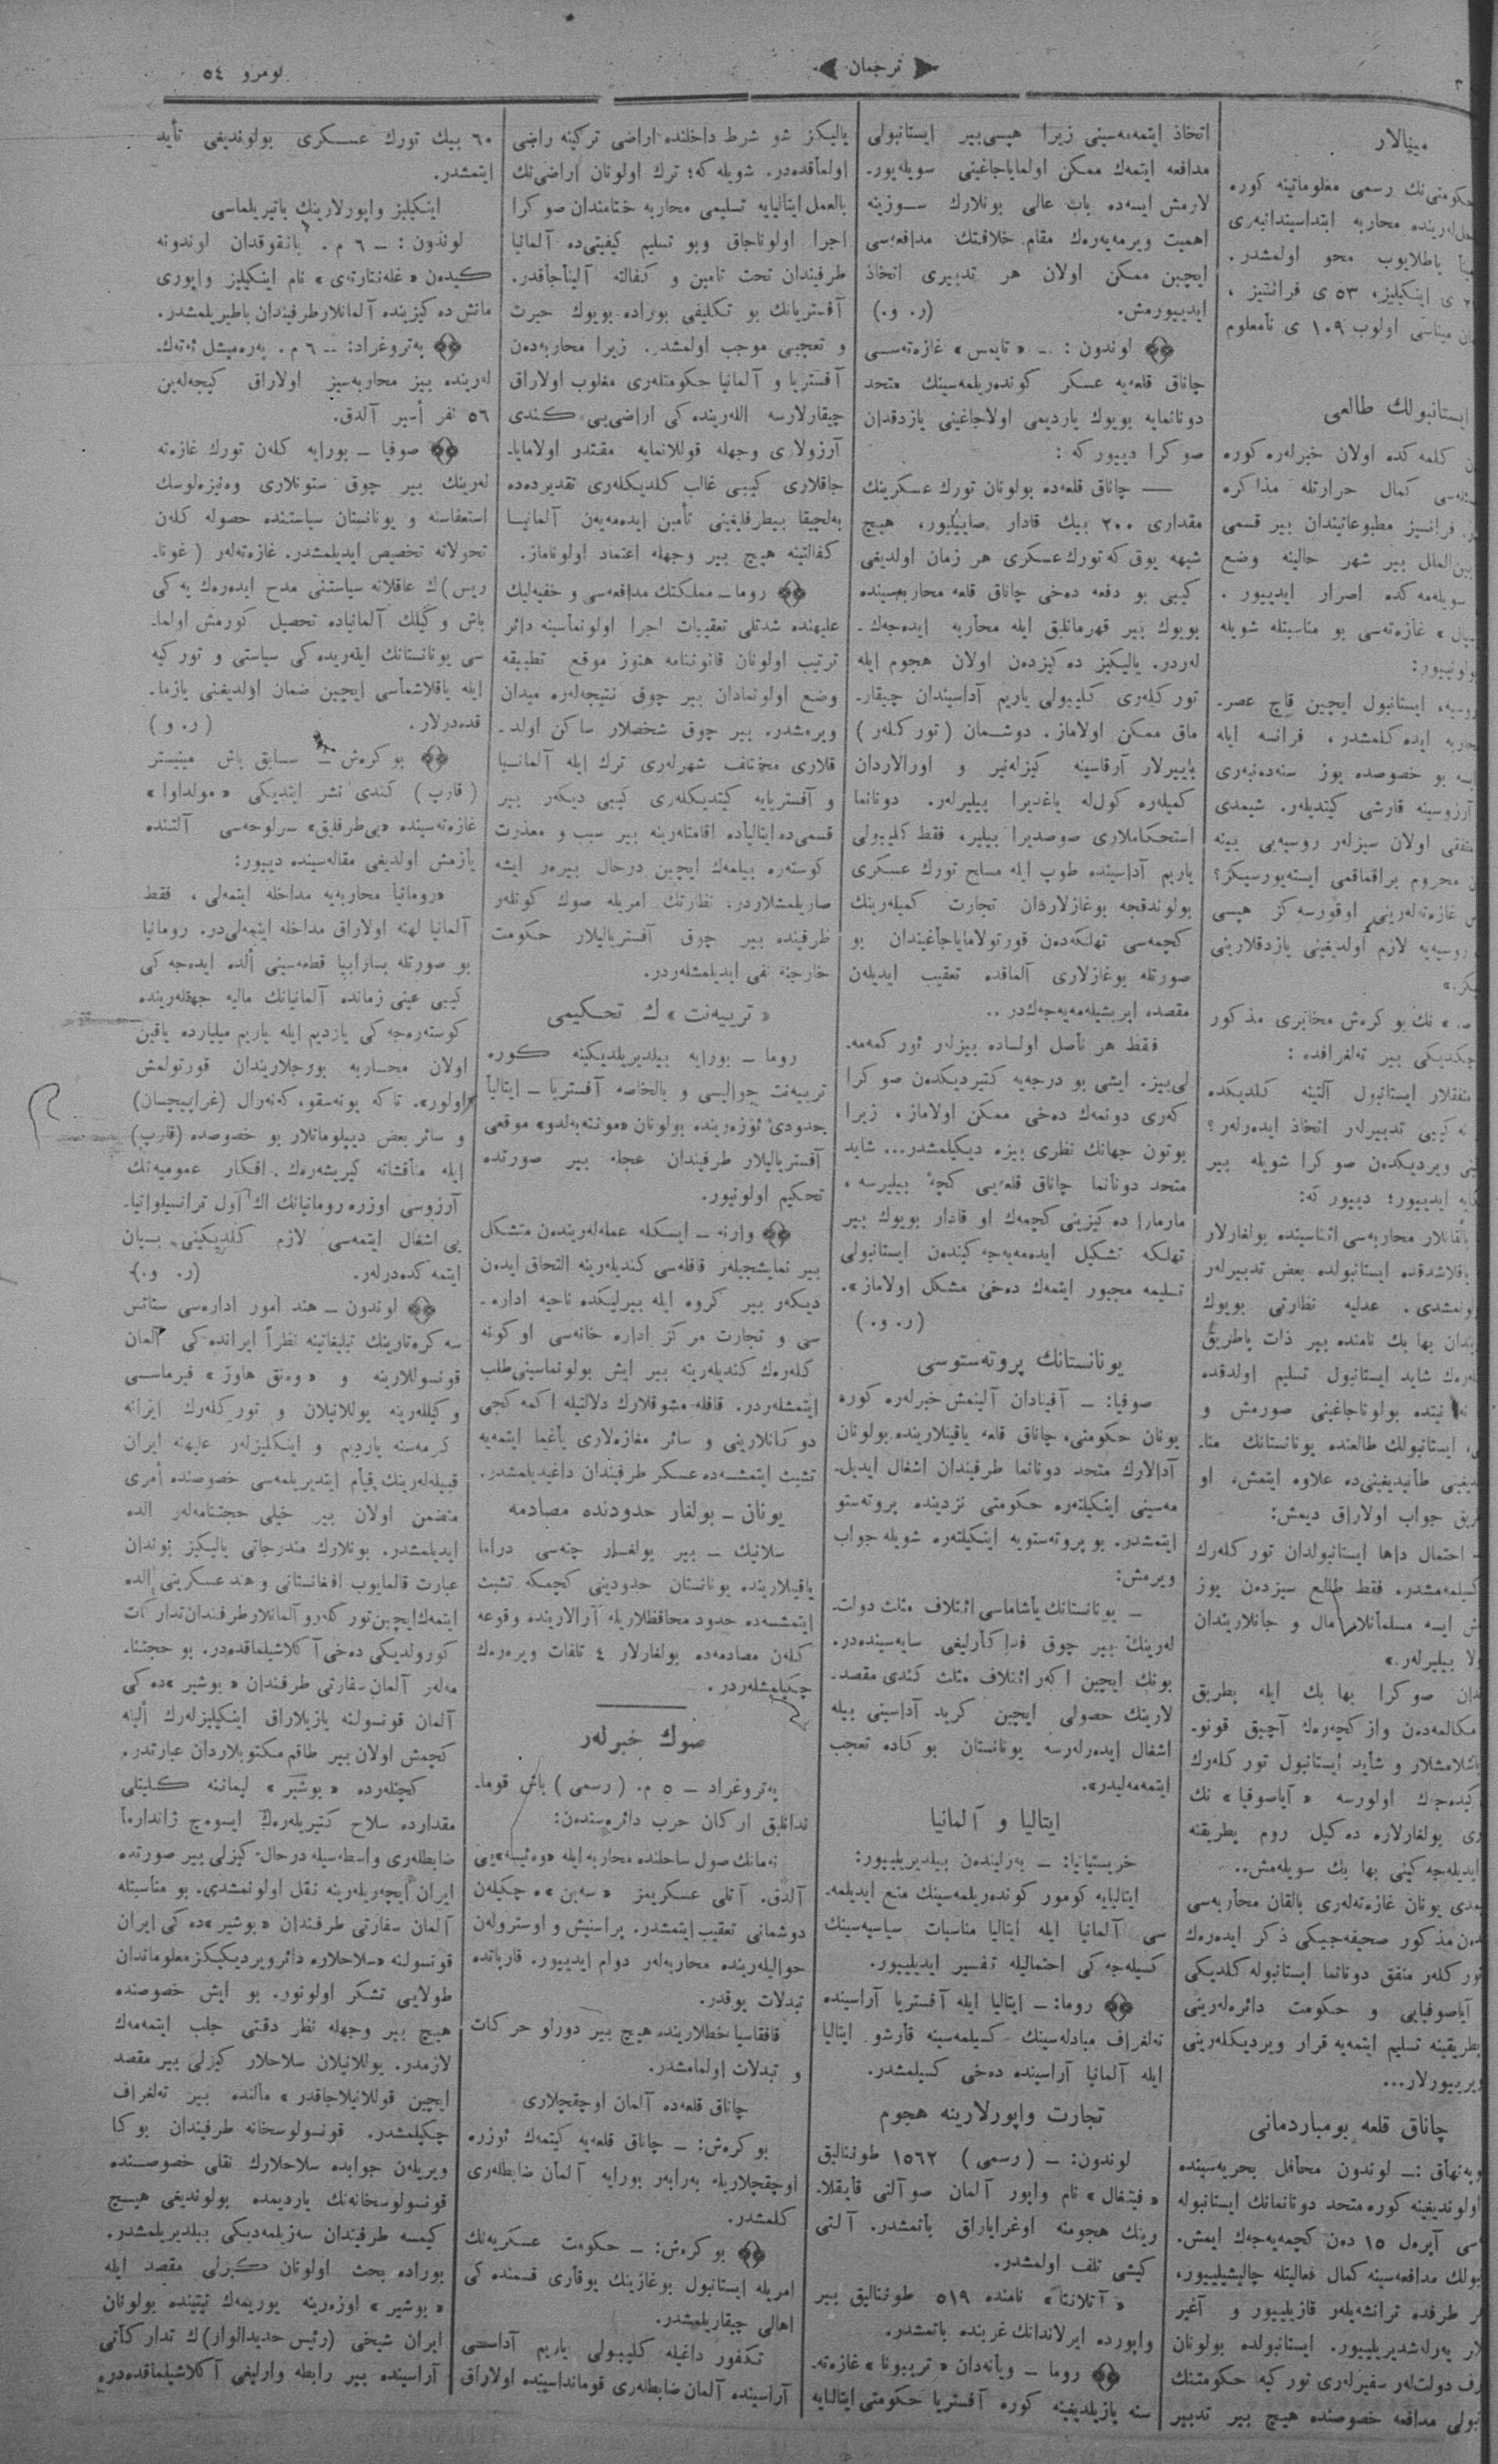 ٢
ترجمان
نومرو ٥٤
مينالار
حكومتى‌نك رسمى معلوماتينه كوره
محل‌لرينده محاربه ابتداسيندانبه‌رى
باطلايوب محو اولمشدر.
ى اينكيليز، ٥٣ ى فرانتيز،
ميناسى اولوب ١٠٩ ى نامعلوم
ايستانبولك طالعى
كلمه‌كده اولان خبرلره كوره
كمال حرارتله مذاكره
فرانسيز مطبوعاتيندان بير قسمى
بين‌الملل بير شهر حالينه وضع
سويله‌مه‌كده اصرار ايدييور.
غازه‌ته‌سى بو مناسبتله شويله
روسيه، ايستانبول ايچين قاچ عصر
محاربه ايده‌كلمشدر، فرانسه ايله
بو خصوصده يوز سنه‌دنبه‌رى
آرزوسينه قارشى كيتديلر. شيمدى
متفقى اولان سيزلر روسيه‌يى يينه
محروم براقماقمى ايسته‌يورسيكز؟
غازه‌ته‌لرينى اوقورسه‌كز هپسى
روسيه‌يه لازم اولديغينى يازدقلارينى
نك بوكرش مخابرى مذكور
چكديكى بير تلغرافده:
متفقلار ايستانبول آلتينه كلديكده
نه كيبى تدبيرلر اتخاذ ايده‌رلر؟
ويرديكدن صوكرا شويله بير
ايدييور؛ دييور كه:
بالقانلار محاربه‌سى اثناسينده بولغارلار
ياقلاشدقده ايستانبولده بعض تدبيرلر
عدليه نظارتى بويوك
بها بك نامنده بير ذات پاطريق
شايد ايستانبول تسليم اولدقده
بولوناجاغينى صورمش و
ايستانبولك طالعنده يونانستانك
طانيديغينى‌ده علاوه ايتمش، او
جواب اولاراق ديمش:
احتمال داها ايستانبولدان توركلرك
كسيلمه‌مشدر. فقط طالع سيزدن يوز
ايسه مسلمانلار مال و جانلاريندان
بيليرلر.»
صوكرا بها بك ايله پطريق
مكالمه‌دن وازكچه‌رك آچيق قونو
باشلامشلار و شايد ايستانبول توركلرك
كيده‌جك اولورسه «آياصوفيا» نك
بولغارلاره ده‌كيل روم پطريقنه
ايديله‌جه‌كينى بها بك سويله‌مش..
يونان غازه‌ته‌لرى بالقان محاربه‌سى
مذكور صحيفه‌جيكى ذكر ايده‌رك
توركلر متفق دونانما ايستانبوله كلديكى
آياصوفيايى و حكومت دائره‌لرينى
پطريقينه تسليم ايتمه‌يه قرار ويرديكلرينى
چاناق قلعه بومباردمانى
لوندون محافل بحريه‌سينده
اولونديغينه كوره متحد دونانمانك ايستانبوله
آپره‌ل ١٥ دن كچمه‌يه‌جك ايمش.
مدافعه‌سينه كمال فعاليتله چاليشيلييور.
طرفده ترانشه‌يلر قازيلييور و آغير
يه‌رله‌شديريلييور. ايستانبولده بولونان
دولت‌لر سفيرلرى توركيه حكومتنك
مدافعه خصوصنده هيچ بير تدبير
اتخاذ ايتمه‌مه‌سينى زيرا هپسى‌بير ايستانبولى
مدافعه ايتمك ممكن اولماياجاغينى سويله‌يور-
لارمش ايسه‌ده باب عالى بونلارك سوزينه
اهميت ويرمه‌يه‌رك مقام خلافتك مدافعه‌سى
ايچين ممكن اولان هر تدبيرى اتخاذ
ايدييورمش. (ر. و.)
لوندون: – «تايمس» غازه‌ته‌سى
چاناق قلعه‌يه عسكر كونده‌ريلمه‌سينك متحد
دونانمايه بويوك يارديمى اولاجاغينى يازدقدان
صوكرا دييوركه:
— چاناق قلعه‌ده بولونان تورك عسكرينك
مقدارى ٢٠٠ بيك قادار صاييلييور، هيچ
شبهه يوق كه تورك عسكرى هر زمان اولديغى
كيبى بو دفعه دخى چاناق قلعه محاربه‌سينده
بويوك بير قهرمانلق ايله محاربه ايده‌جك-
لردر. ياليكيز ده‌كيزدن اولان هجوم ايله
توركلرى كليبولى ياريم آداسيندان چيقار-
ماق ممكن اولاماز. دوشمان (توركلر)
باييرلار آرقاسينه كيزله‌نير و اورالاردان
كميلره كول‌له ياغديرا بيليرلر. دونانما
استحكاملارى صوصديرا بيلير، فقط كليبولى
ياريم آداسينده طوپ ايله مسلح تورك عسكرى
بولوندقجه بوغازلاردان تجارت كميلرينك
كچمه‌سى تهلكه‌دن قورتولاماياجاغيندان بو
صورتله بوغازلارى آلماقده تعقيب ايديلن
مقصده ايريشيله‌مه‌يه‌جكدر..
فقط هر ناصل اولساده بيزلر ئوركمه‌مه-
لى‌ييز. ايشى بو درجه‌يه كتيرديكدن صوكرا
كه‌رى دونمك دخى ممكن اولاماز، زيرا
بوتون جهانك نظرى بيزه ديكيلمشدر... شايد
متحد دونانما چاناق قلعه‌يى كچه بيليرسه،
مارمارا ده‌كيزينى كچمك او قادار بويوك بير
تهلكه تشكيل ايده‌مه‌يه‌جه‌كيندن ايستانبولى
تسليمه مجبور ايتمك دخى مشكل اولاماز».
(ر. و.)
يونانستانك پروته‌ستوسى
صوفيا: – آفينادان آلينمش خبرلره كوره
يونان حكومتى، چاناق قلعه ياقينلارينده بولونان
آدالارك متحد دونانما طرفيندان اشغال ايديل-
مه‌سينى اينكيلتره حكومتى نزدينده پروته‌ستو
ايتمشدر. بو پروته‌ستويه اينكيلتره شويله جواب
ويرمش:
– يونانستانك ياشاماسى ائتلاف مثلث دولت-
لرينك بير چوق فداكارليغى سايه‌سينده‌در.
بونك ايچين اكر ائتلاف مثلث كندى مقصد-
لارينك حصولى ايچين كريد آداسينى بيله
اشغال ايده‌رلرسه يونانستان بوكاده تعجب
ايتمه‌مه‌ليدر».
ايتاليا و آلمانيا
خريستيانيا: – برليندن بيلديريلييور:
ايتاليايه كومور كونده‌ريلمه‌سينك منع ايديلمه-
سى آلمانيا ايله ايتاليا مناسبات سياسيه‌سينك
كسيله‌جه‌كى احتماليله تفسير ايديلييور.
روما: – ايتاليا ايله آفستريا آراسينده
تلغراف مبادله‌سينك كسيلمه‌سينه قارشو ايتاليا
ايله آلمانيا آراسينده دخى كسيلمشدر.
تجارت واپورلارينه هجوم
لوندون: – (رسمى) ١٥٦٢ طونناليق
نام واپور آلمان صو آلتى قايقلا-
رينك هجومنه اوغراياراق باتمشدر. آلتى
كيشى تلف اولمشدر.
«آتلانتا» نامنده ٥١٩ طونناليق بير
واپورده ايرلاندانك غربنده باتمشدر.
روما – ويانه‌دان «تريبونا» غازه‌ته-
سنه يازيلديغينه كوره آفستريا حكومتى ايتاليايه
ياليكز شو شرط داخلنده اراضى تركينه راضى
اولماقده‌در. شويله كه؛ ترك اولونان اراضى‌نك
بالعمل ايتاليايه تسليمى محاربه ختامندان صوكرا
اجرا اولوناجاق وبو تسليم كيفيتى‌ده آلمانيا
طرفيندان تحت تامين و كفالته آلناجاقدر.
آفستريانك بو تكليفى بوراده بويوك حيرت
و تعجبى موجب اولمشدر. زيرا محاربه‌دن
آفستريا و آلمانيا حكومتلرى مغلوب اولاراق
چيقارلارسه اللرينده‌كى اراضى‌يى كندى
آرزولارى وجهله قوللانمايه مقتدر اولامايا-
جاقلارى كيبى غالب كلديكلرى تقديرده‌ده
بلچيقا بيطرفليغينى تأمين ايده‌مه‌ين آلمانيا
كفالتينه هيچ بير وجهله اعتماد اولوناماز.
روما – مملكتك مدافعه‌سى و خفيه‌ليك
عليهنده شدتلى تعقيبات اجرا اولونماسينه دائر
ترتيب اولونان قانوننامه هنوز موقع تطبيقه
وضع اولونمادان بير چوق نتيجه‌لره ميدان
ويرمشدر. بير چوق شخصلار ساكن اولد-
قلارى مختلف شهرلرى ترك ايله آلمانيا
و آفستريايه كيتديكلرى كيبى ديكر بير
قسمى‌ده ايتالياده اقامتلرينه بير سبب و معذرت
كوستره بيلمك ايچين درحال بيرر ايشه
صاريلمشلاردر. نظارتك امريله صوك كونلر
ظرفينده بير چوق آفستريالييلار حكومت
خارجنه نفى ايديلمشلردر.
«ترييه‌نت» ك تحكيمى
روما – بورايه بيلديريلديكينه كوره
ترييه‌نت حوالیسى و بالخاصه آفستريا – ايتاليا
حدودى ئوزه‌رينده بولونان «مونته‌به‌لدو» موقعى
آفستريالييلار طرفيندان عجله بير صورتده
تحكيم اولونيور.
وارنه – ايسكله عمله‌لريندن متشكل
بير نمايشجيلر قافله‌سى كنديلرينه التحاق ايدن
ديكر بير كروه ايله بيرليكده ناحيه اداره-
سى و تجارت مركز اداره خانه‌سى اوكونه
كلرك كنديلرينه بير ايش بولونماسينى طلب
ايتمشلردر. قافله مشوقلارك دلالتيله اكمه‌كجى
دوكانلارينى و سائر مغازه‌لارى ياغما ايتمه‌يه
تشبث ايتمشسه‌ده عسكر طرفيندان داغيديلمشدر.
يونان – بولغار حدودنده مصادمه
سلانيك – بير بولغار چته‌سى دراما
ياقينلارينده يونانستان حدودينى كچمكه تشبث
ايتمشسه‌ده حدود محافظلاريله آرالارينده وقوعه
كلن مصادمه‌ده بولغارلار ٤ تلفات ويره‌رك
چكيلمشلردر.
صوك خبرلر
پتروغراد – ٥ م. (رسمى) باش قوما-
ندانليق اركان حرب دائره‌سندن:
نه‌مانك صول ساحلنده محاربه ايله
آلدق. آتلى عسكريمز چكيلن
دوشمانى تعقيب ايتمشدر. پراسنيش و اوسترولن
حواليلرينده محاربه‌لر دوام ايدييور. قارپاتده
تبدلات يوقدر.
قافقاسيا خطلارينده هيچ بير دورلو حركات
و تبدلات اولمامشدر.
چاناق قلعه‌ده آلمان اوچقچلارى
بوكرش: – چاناق قلعه‌يه كيتمك ئوزره
اوچقجلاريله برابر بورايه آلمان ضابطلرى
كلمشدر.
بوكرش: – حكومت عسكريه‌نك
امريله ايستانبول بوغازينك يوقارى قسمنده‌كى
اهالى چيقاريلمشدر.
تكفور داغيله كليبولى ياريم آداسى
آراسينده آلمان ضابطلرى قومانداسينده اولاراق
٦٠ بيك تورك عسكرى بولونديغى تأيد
ايتمشدر.
اينكيليز واپورلارينك باتيريلماسى
لوندون: – ٦ م. بانقوقدان لوندونه
كيدن نام اينكيليز واپورى
مانش ده‌كيزينده آلمانلار طرفيندان باطيريلمشدر.
پتروغراد: – ٦ م.
لرينده بيز محاربه‌سيز اولاراق كيجه‌لين
٥٦ نفر أسير آلدق.
صوفيا – بورايه كلن تورك غازه‌ته
لرينك بير چوق ستونلارى وه‌نيزه‌لوسك
استعفاسنه و يونانستان سياستنده حصوله كلن
تحولاته تخصيص ايديلمشدر. غازه‌ته‌لر (غونا-
ريس)ك عاقلانه سياستنى مدح ايده‌رك يه‌كى
باش وكيلك آلمانياده تحصيل كورمش اولما-
سى يونانستانك ايلريده‌كى سياستى و توركيه
ايله ياقلاشماسى ايچين ضمان اولديغينى يازما-
قده‌درلار. (ر. و)
بوكرش – سابق باش مينيستر
(قارپ) كندى نشر ايتديكى «مولداوا»
غازه‌ته‌سينده «بى‌طرفليق» سرلوحه‌سى آلتنده
يازمش اولديغى مقاله‌سينده دييور:
«رومانيا محاربه‌يه مداخله ايتمه‌لى، فقط
آلمانيا لهنه اولاراق مداخله ايتمه‌لى‌در. رومانيا
بو صورتله بسارابيا قطعه‌سينى ألده ايده‌جه‌كى
كيبى عينى زمانده آلمانيانك ماليه جهتلرينده
كوستره‌جه‌كى يارديم ايله ياريم ميلياردە ياقين
اولان محاربه بورجلاريندان قورتولمش
اولور». تاكه يونه‌سقو، كه‌نه‌رال (غراييچسان)
و سائر بعض ديپلوماتلار بو خصوصده (قارپ)
ايله مناقشاته كيريشه‌رك افكار عموميه‌نك
آرزوسى اوزره رومانيانك اك اول ترانسيلوانيا-
يى اشغال ايتمه‌سى لازم كلديكينى بيان
ايتمه‌كده‌درلر. (ر. و.)
لوندون – هند امور اداره‌سى ستاتس
سه‌كره‌تارينك تبليغاتينه نظراً ايرانده‌كى آلمان
قونسوللارينه و «وه‌نق هاوز» فيرماسى
وكيللرينه يوللانيلان و توركلرك ايرانه
كرمه‌سنه يارديم و اينكليزلر عليهنه ايران
قبيله‌لرينك قيام ايتديريلمه‌سى خصوصنده أمرى
متضمن اولان بير خيلى حجتنامه‌لر الده
ايديلمشدر. بونلارك مندرجاتى ياليكيز بوندان
عبارت قالمايوب افغانستانى و هند عسكرينى الده
ايتمك ايچين توركلر و آلمانلار طرفندان تداركات
كورولديكى دخى آكلاشيلماقده‌در. بو حجتنا-
مه‌لر آلمان سفارتى طرفندان «بوشير» ده‌كى
آلمان قونسولنه يازيلاراق اينكيليزلرك ألينه
كچمش اولان بير طاقم مكتوبلاردان عبارتدر.
كچنلرده «بوشير» ليماننه كليتلى
مقدارده سلاح كتيريلرك ايسوه‌چ ژاندارما
ضابطلرى واسطه‌سيله درحال كيزلى بير صورتده
ايران ايچه‌ريلرينه نقل اولونمشدى. بو مناسبتله
آلمان سفارتى طرفندان «بوشير» ده‌كى ايران
قونسولنه «سلاحلاره دائر ويرديكيكز معلوماتدان
طولايى تشكر اولونور. بو ايش خصوصنده
هيچ بير وجهله نظر دقتى جلب ايتمه‌مك
لازمدر. يوللانيلان سلاحلار كيزلى بير مقصد
ايچين قوللانيلاجاقدر» مآلنده بير تلغراف
چكيلمشدر. قونسولوسخانه طرفيندان بوكا
ويريلن جوابده سلاحلارك نقلى خصوصنده
قونسولوسخانه‌نك يارديمده بولونديغى هيچ
كيمسه طرفيندان سه‌زيلمه‌ديكى بيلديريلمشدر.
بوراده بحث اولونان كيزلى مقصد ايله
«بوشير» اوزه‌رينه يوريمك نيتينده بولونان
ايران شيخى (رئيس حديدالوار)ك تداركاتى
آراسينده بير رابطه وارليغى آكلاشيلماقده‌در.